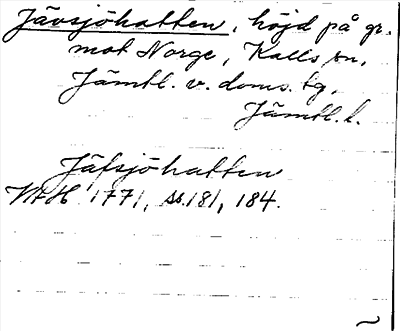 Jävsjöhatten, höjd på gr.
mot Norge, Kalls sn,
Jämtl. v. doms. tg,
Jämtl. l.
Jäfsjöhatten
VAH 1771, ss. 181, 184.